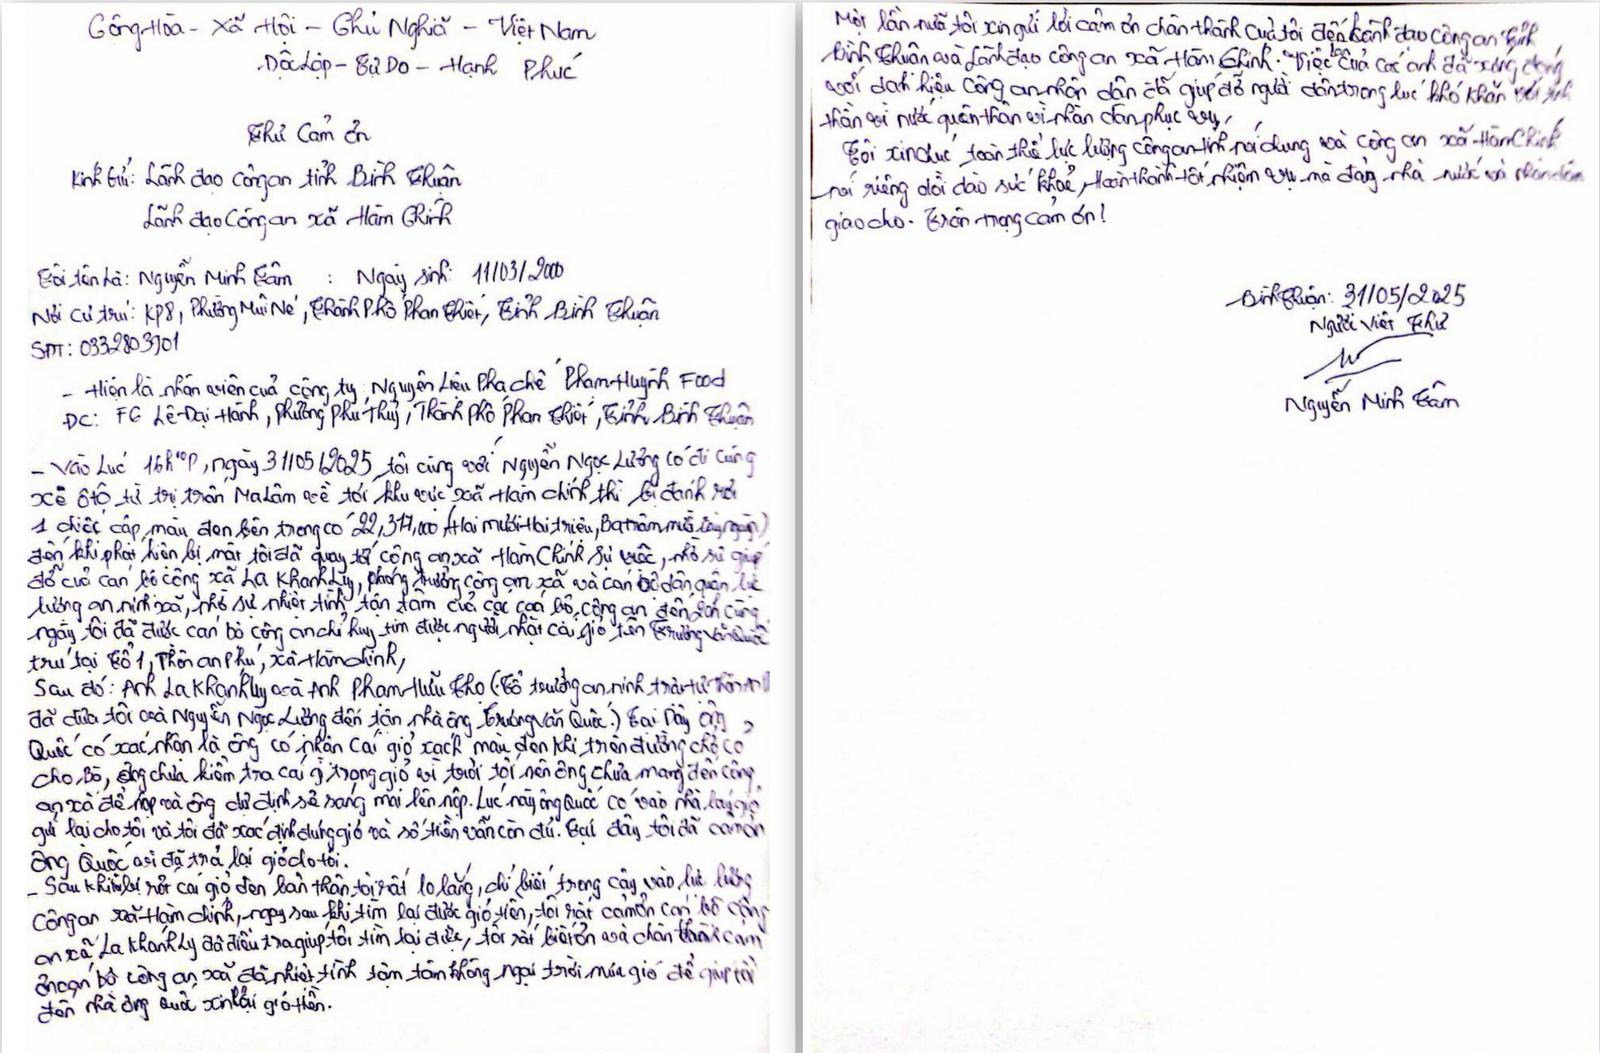 Cộng Hòa - Xã Hội - Chủ Nghĩa - Việt Nam
Độc Lập - Tự Do - Hạnh Phúc
Thư Cảm ơn
Kính Gửi: Lãnh đạo công an tỉnh Bình Thuận
Lãnh đạo Công an xã Hàm Chính
Tôi tên Là: Nguyễn Minh Tâm : Ngày sinh: 11/03/2000
Nơi cư trú: KP8, Phường Mũi Né, Thành Phố Phan Thiết, Tỉnh Bình Thuận
SĐT: 0332803901
- Hiện là nhân viên của công ty Nguyên Liệu Pha chế Phạm Huỳnh Food
ĐC: FG Lê Đại Hành, Phường Phú Thuỷ, Thành Phố Phan Thiết, Tỉnh Bình Thuận
- Vào Lúc 16h10P, ngày 31/05/2025 tôi cùng với Nguyễn Ngọc Lượng có đi cùng
xe ôtô từ trị trấn Ma Lâm về tới khu vực xã Hàm chính thì bị đánh rơi
1 chiếc cặp màu đen bên trong có 22,317,000 (Hai mươi Hai triệu, Ba trăm mười bảy ngàn)
đến khi phát hiện bị mất tôi đã quay tới công an xã Hàm Chính sự việc, nhờ sự giúp
đỡ của cán bộ công xã La Khánh Ly, phó trưởng công an xã và cán bộ dân quân lực
lượng an ninh xã, nhờ sự nhiệt tình tận tâm của các cán bộ công an đến 20h cùng
ngày tôi đã được cán bộ công an chỉ huy tìm được người nhặt cái giỏ tiền Trương Văn Quốc
trú tại Tổ 1, Thôn an Phú, xã Hàm chính,
Sau đó: Anh La Khánh Ly và Anh Phạm Hữu Thọ (Tổ trưởng an ninh trật tự thôn
đã đưa tôi và Nguyễn Ngọc Lượng đến tận nhà ông Trương Văn Quốc.) Tại Đây ông
Quốc có xác nhận là ông có nhặn cái giỏ xách màu đen khi trên đường chở cỏ
cho Bò, ông chưa kiểm tra cái gì trong giỏ vì trời tối nên ông chưa mang đến công
an xã để nộp và ông dự định sẽ sáng mai lên nộp. Lúc này ông Quốc có vào nhà lấy giỏ
gửi lại cho tôi và tôi đã xác định đúng giỏ và số tiền vẫn còn đủ. Tại đây tôi đã cảm ơn
ông Quốc vì đã trả lại giỏ cho tôi.
- Sau khi bị rớt cái giỏ đen bản thân tôi rất lo lắng, chỉ biết trông cậy vào lực lượng
công an xã Hàm chính, ngay sau khi tìm lại được giỏ tiền, tôi rất cảm ơn cán bộ công
an xã La Khánh Ly đã điều tra giúp tôi tìm lại được, tôi rất biết ơn và chân thành cảm
ơn cán bộ công an xã đã nhiệt tình tận tâm không ngại trời mưa gió để giúp tôi
đến nhà ông Quốc xin lại giỏ tiền.
Một lần nữa tôi xin gửi lời cảm ơn chân thành của tôi đến Lãnh đạo công an tỉnh
Bình Thuận và Lãnh đạo công an xã Hàm Chính. Việc làm của các anh đã xứng đáng
với danh hiệu công an nhân dân đã giúp đỡ người dân trong lúc khó khăn với tinh
thần vì nước quên thân vì nhân dân phục vụ,
Tôi xin chúc toàn thể lực lượng công an tỉnh nói chung và công an xã Hàm Chính
nói riêng dồi dào sức khoẻ, Hoàn thành tốt nhiệm vụ mà đảng nhà nước và nhân dân
giao cho. Trân trọng cảm ơn!
Bình Thuận: 31/05/2025
Người Viết Thư
Nguyễn Minh Tâm